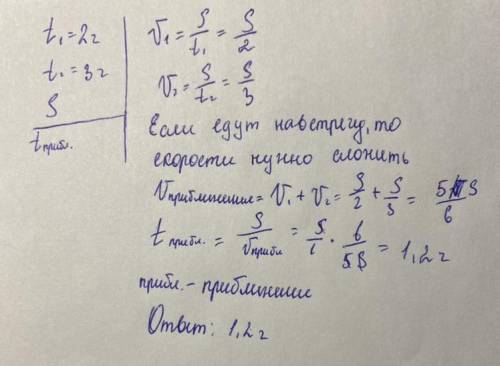 t₁ = 2ч
t₂ = 3ч
S
tприбл.
V₁ = S/t₁ = S/2
V₂ = S/t₂ = S/3
Если едут навстречу, то
скорости нужно сложить
Vприближения = V₁ + V₂ = S/2 + S/3 = 5S/6
tприбл. = S/Vприбл = S/1 · 6/5S = 1,2 ч
прибл. - приближение
Ответ: 1,2 ч